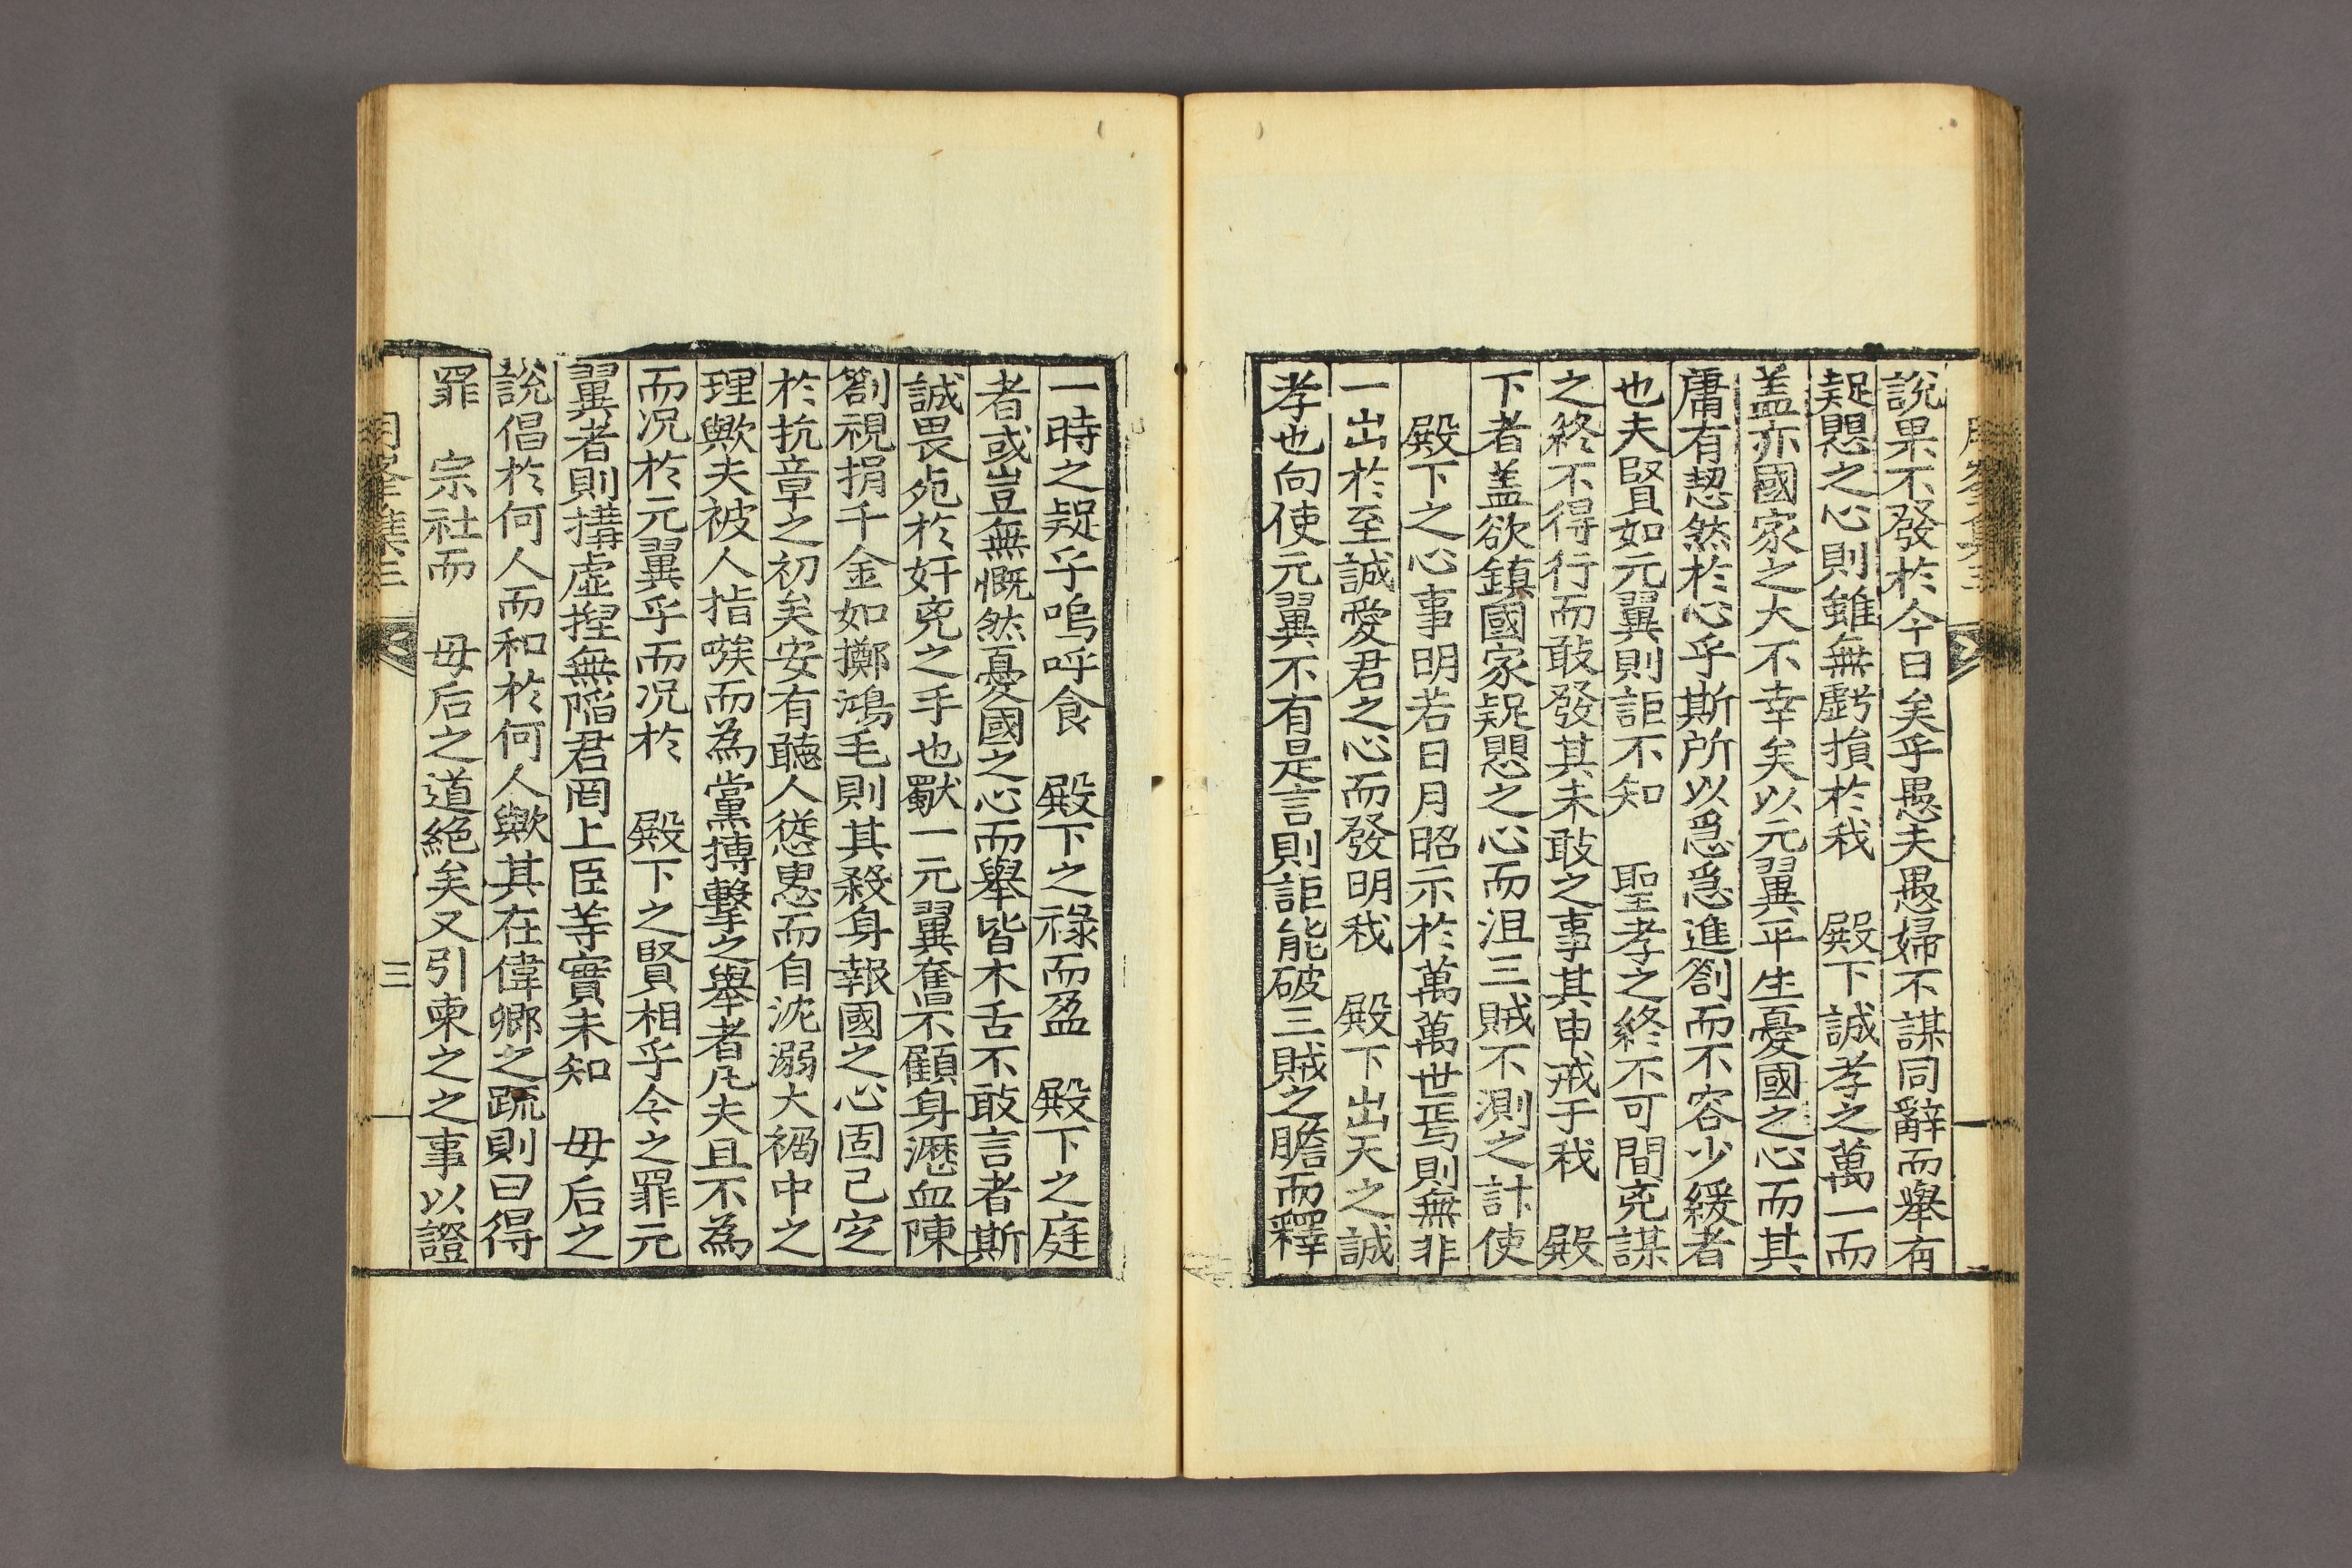 說果不發於今日矣乎愚夫愚婦不謀同辭而舉有
疑愳之心則雖無虧損於我 殿下誠孝之萬一而
盖亦國家之大不幸矣以元翼平生憂國之心而其
庸有恝然於心乎斯所以急急進劄而不容少緩者
也夫賢如元翼則詎不知 聖孝之終不可間兇謀
之終不得行而敢發其未敢之事其申戒于我 殿
下者盖欲鎮國家疑愳之心而沮三賊不測之計使
殿下之心事明若日月昭示於萬萬世焉則無非
一出於至誠愛君之心而發明我 殿下出天之誠
孝也向使元翼不有是言則詎能破三賊之膽而釋
一時之疑乎嗚呼食 殿下之祿而盈 殿下之庭
者或豈無慨然憂國之心而舉皆木舌不敢言者斯
誠畏死於奸兇之手也獸一元翼奮不顧身瀝血陳
劄視捐千金如擲鴻毛則其殺身報國之心固已定
於抗章之初矣安有聽人慫恿而自沈溺大禍中之
理歟夫被人指嗾而為黨搏擊之舉者凡夫且不為
而况於元翼乎而况於 殿下之賢相乎今之罪元
翼者則搆虛捏無陷君罔上臣等實未知 毋后之
說倡於何人而和於何人歟其在偉卿之疏則曰得
罪 宗社而 毋后之道絕矣又引東之之事以證
三